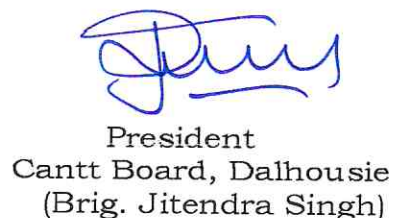 President
Cantt Board, Dalhousie
(Brig. Jitendra Singh)